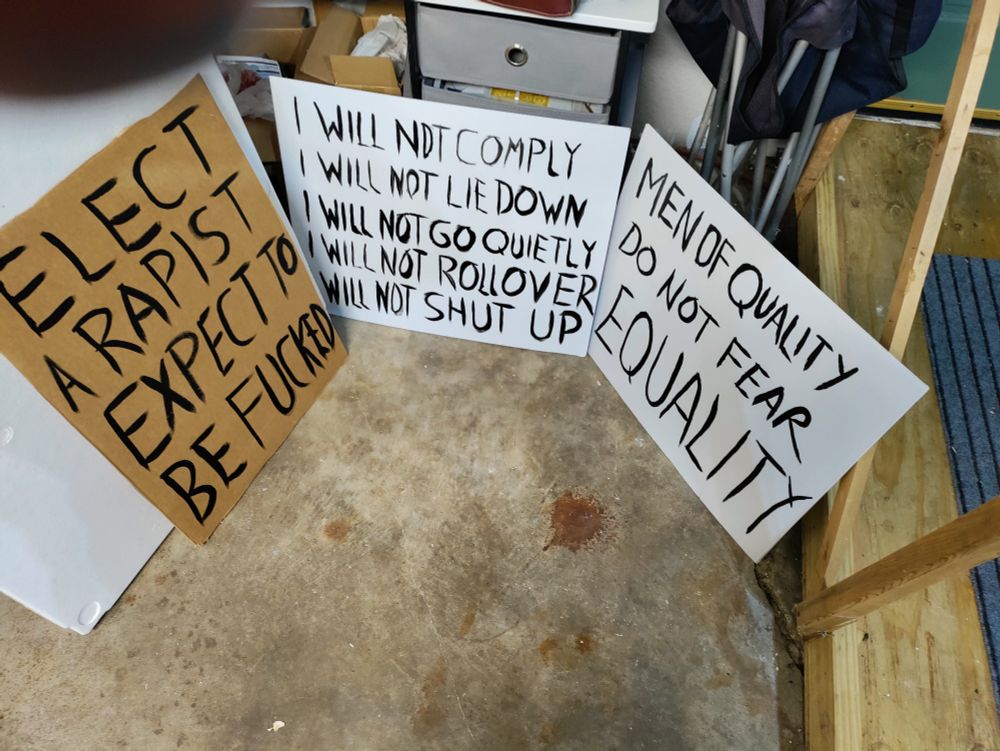 ELECT
A RAPIST
EXPECT TO
BE FUCKED
I WILL NOT COMPLY
I WILL NOT LIE DOWN
I WILL NOT GO QUIETLY
I WILL NOT ROLLOVER
I WILL NOT SHUT UP
MEN OF QUALITY
DO NOT FEAR
EQUALITY